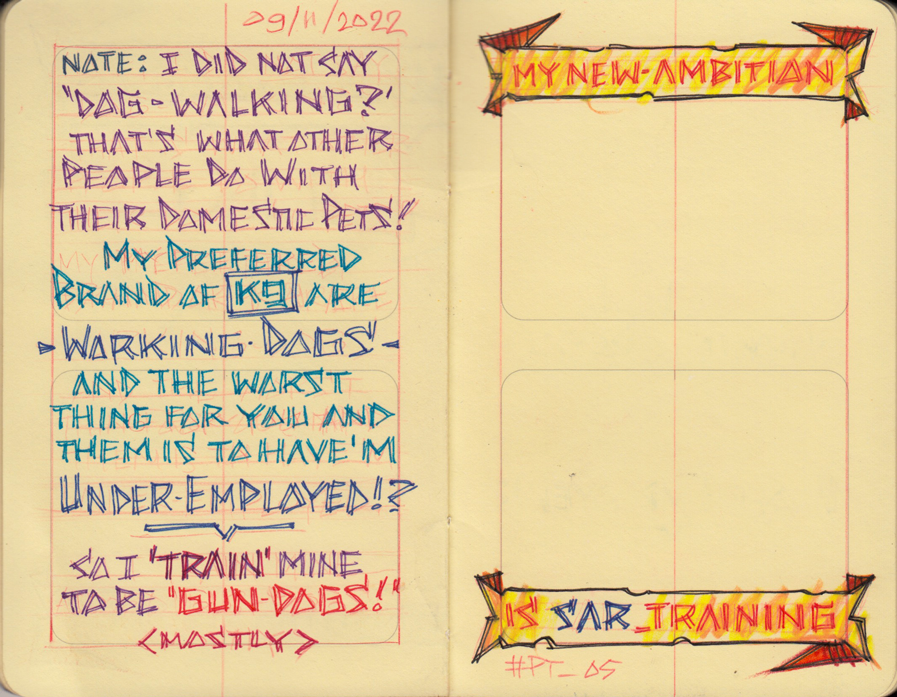 09/11/2022
NOTE: I DID NOT SAY
"DOG-WALKING?'
THAT'S WHAT OTHER
PEOPLE DO WITH
THEIR DOMESTIC PETS!
MY PREFERRED
BRAND OF K9 ARE
WORKING-DOGS'
AND THE WORST
THING FOR YOU AND
THEM IS TO HAVE'M
UNDER-EMPLOYED!?
SO I "TRAIN" MINE
TO BE "GUN-DOGS!"
<MOSTLY>
MY NEW-AMBITION
IS SAR_TRAINING
#PT_05